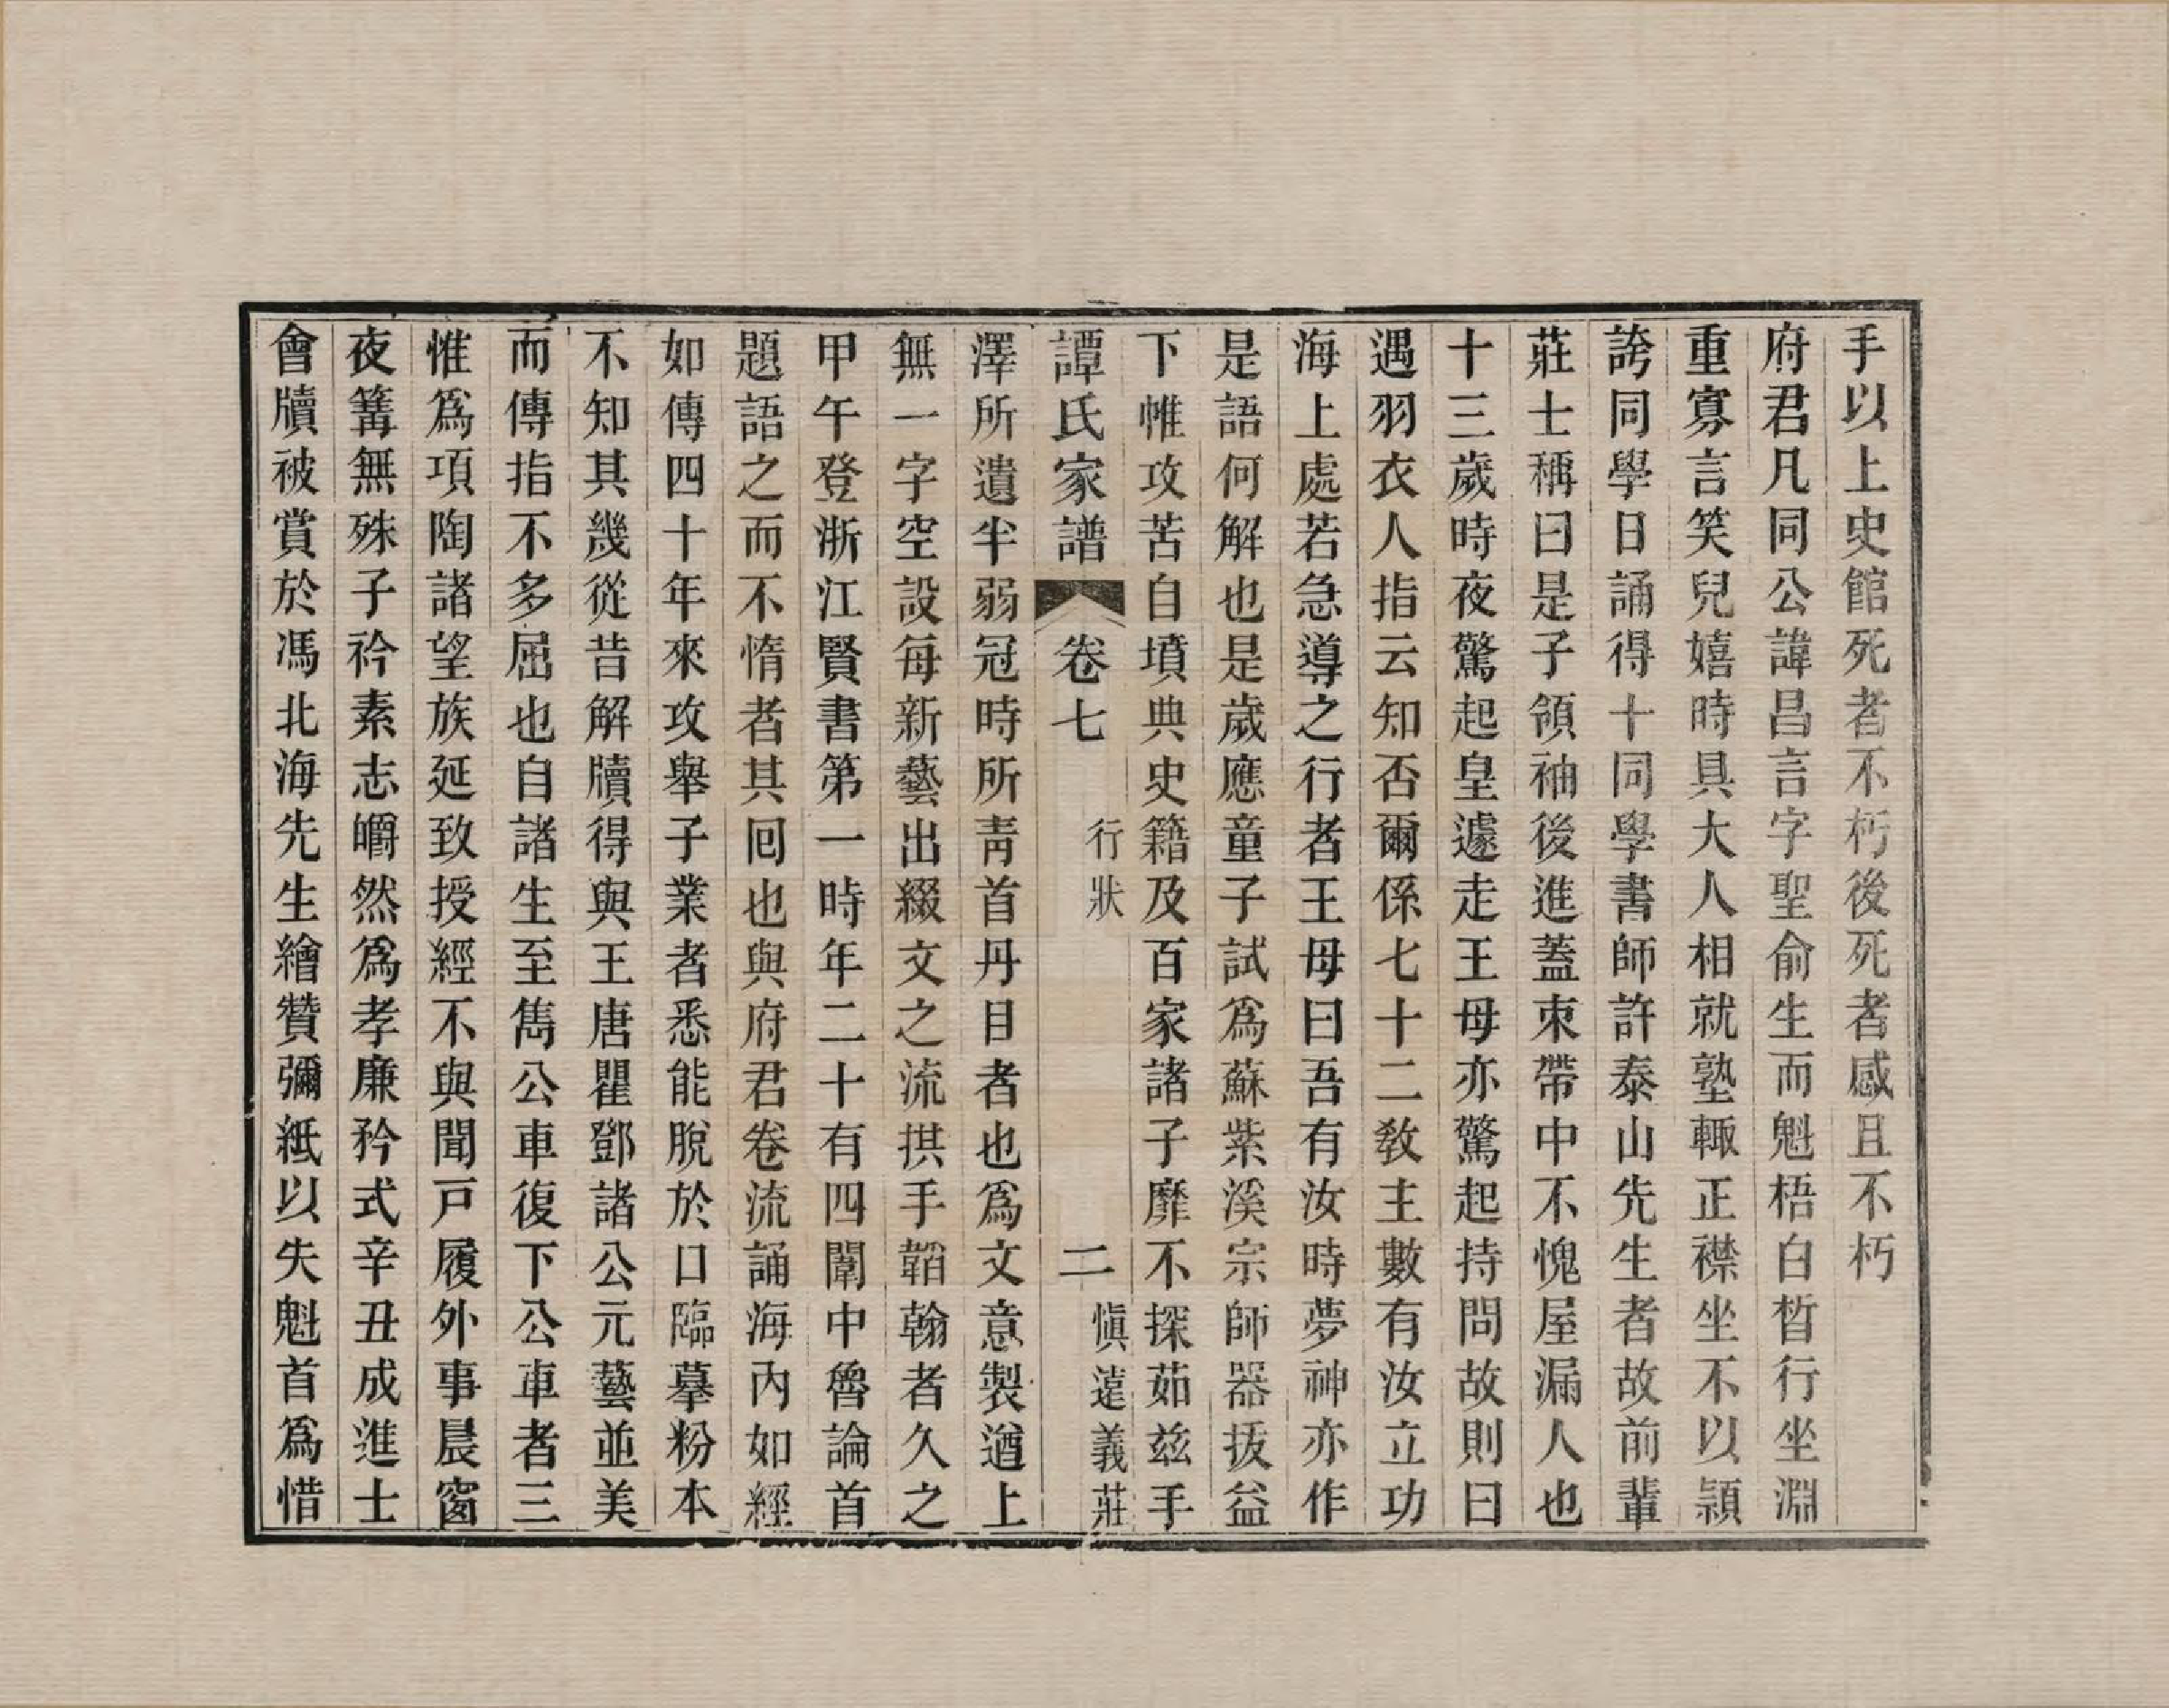 手以上史館死者不朽後死者感且不朽
府君凡同公諱昌言字聖俞生而魁梧白晳行坐淵
重寡言笑兒嬉時具大人相就塾輒正襟坐不以穎
誇同學日誦得十同學書師許泰山先生者故前輩
莊士稱曰是子領袖後進蓋束帶中不愧屋漏人也
十三歲時夜驚起皇遽走王母亦驚起持問故則曰
遇羽衣人指云知否爾係七十二敎主數有汝立功
海上處若急導之行者王母曰吾有汝時夢神亦作
是語何解也是歲應童子試爲蘇紫溪宗師器拔益
下帷攻苦自墳典史籍及百家諸子靡不探茹玆手
譚氏家譜 卷七 行狀 二 愼遠義莊
澤所遺半弱冠時所靑首丹目者也爲文意製遒上
無一字空設每新藝出綴文之流拱手韜翰者久之
甲午登浙江賢書第一時年二十有四闈中魯論首
題語之而不惰者其囘也與府君卷流誦海內如經
如傳四十年來攻舉子業者悉能脫於口臨摹粉本
不知其幾從昔解牘得與王唐瞿鄧諸公元藝並美
而傳指不多屈也自諸生至雋公車復下公車者三
惟爲項陶諸望族延致授經不與聞戸履外事晨窗
夜篝無殊子衿素志皭然爲孝廉矜式辛丑成進士
會牘被賞於馮北海先生繪贊彌紙以失魁首爲惜